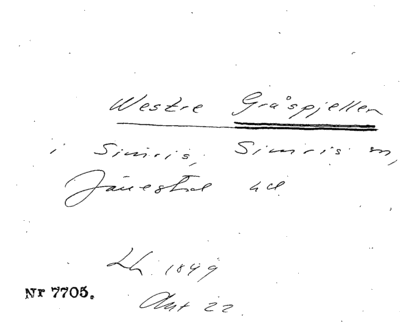 Westre Gråspjellen
i Simris, Simris sn,
Järrestad hd
Lh. 1849
Akt 22
Nr 7705.